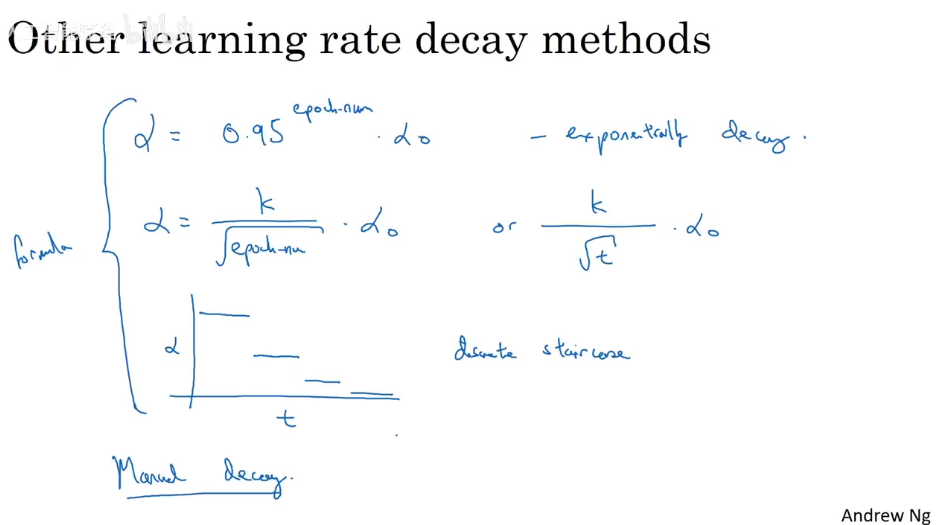 Other learning rate decay methods
α = 0.95^epoch-num · α₀ - exponentially decay.
formula
α = k/√epoch-num · α₀ or k/√t · α₀
α
discrete staircase
t
Manual decay.
Andrew Ng